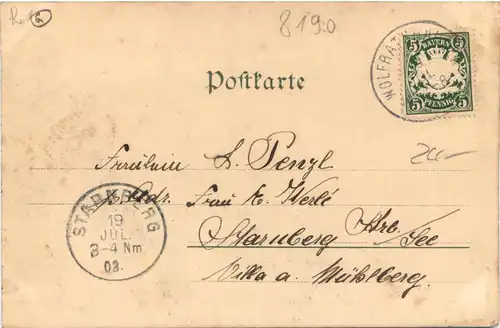 6
8190
WOLFRATSHAUSEN
5 BAYERN 5
5 PFENNIG 5
Postkarte
24.-
Fräulein L. Penzl
Adr. Frau E. Werlé
Starnberg Strb./See
Villa a. Mühlberg.
STARNBERG
19
JUL.
3-4 Nm
03.